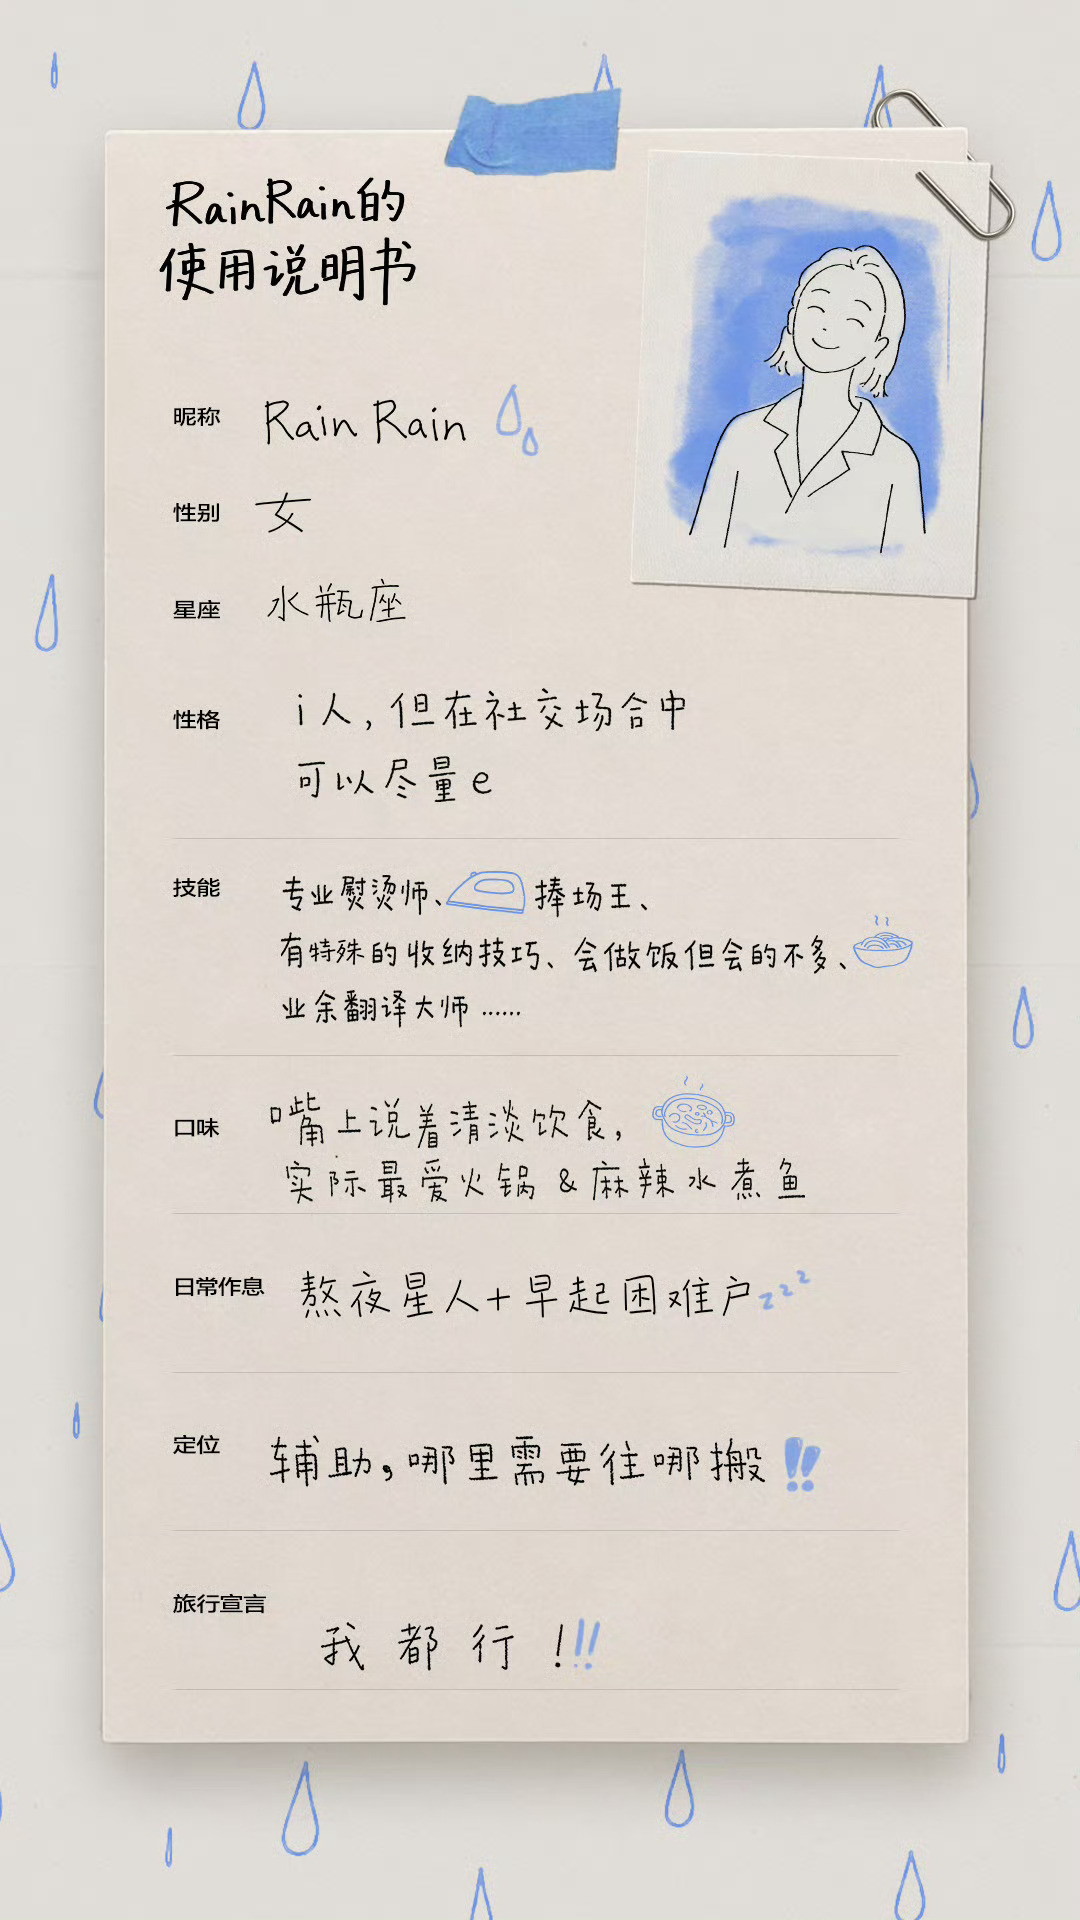 RainRain的
使用说明书
昵称 Rain Rain
性别 女
星座 水瓶座
性格 i人，但在社交场合中
可以尽量e
技能 专业熨烫师、捧场王、
有特殊的收纳技巧、会做饭但会的不多、
业余翻译大师……
口味 嘴上说着清淡饮食，
实际最爱火锅&麻辣水煮鱼
日常作息 熬夜星人+早起困难户zzz
定位 辅助，哪里需要往哪搬!!
旅行宣言
我都行!!!